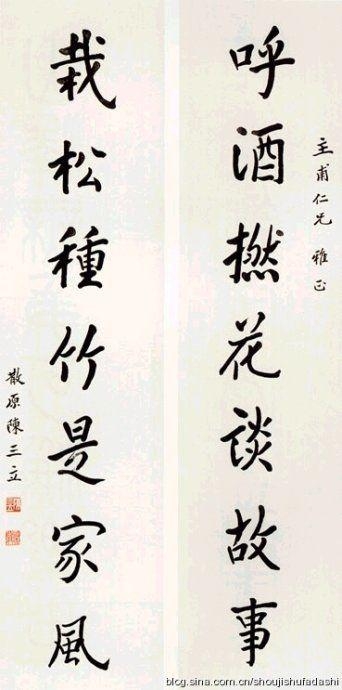 主甫仁兄 雅正
呼酒撚花談故事
栽松種竹是家風
散原陳三立
blog.sina.com.cn/shoujishufadashi